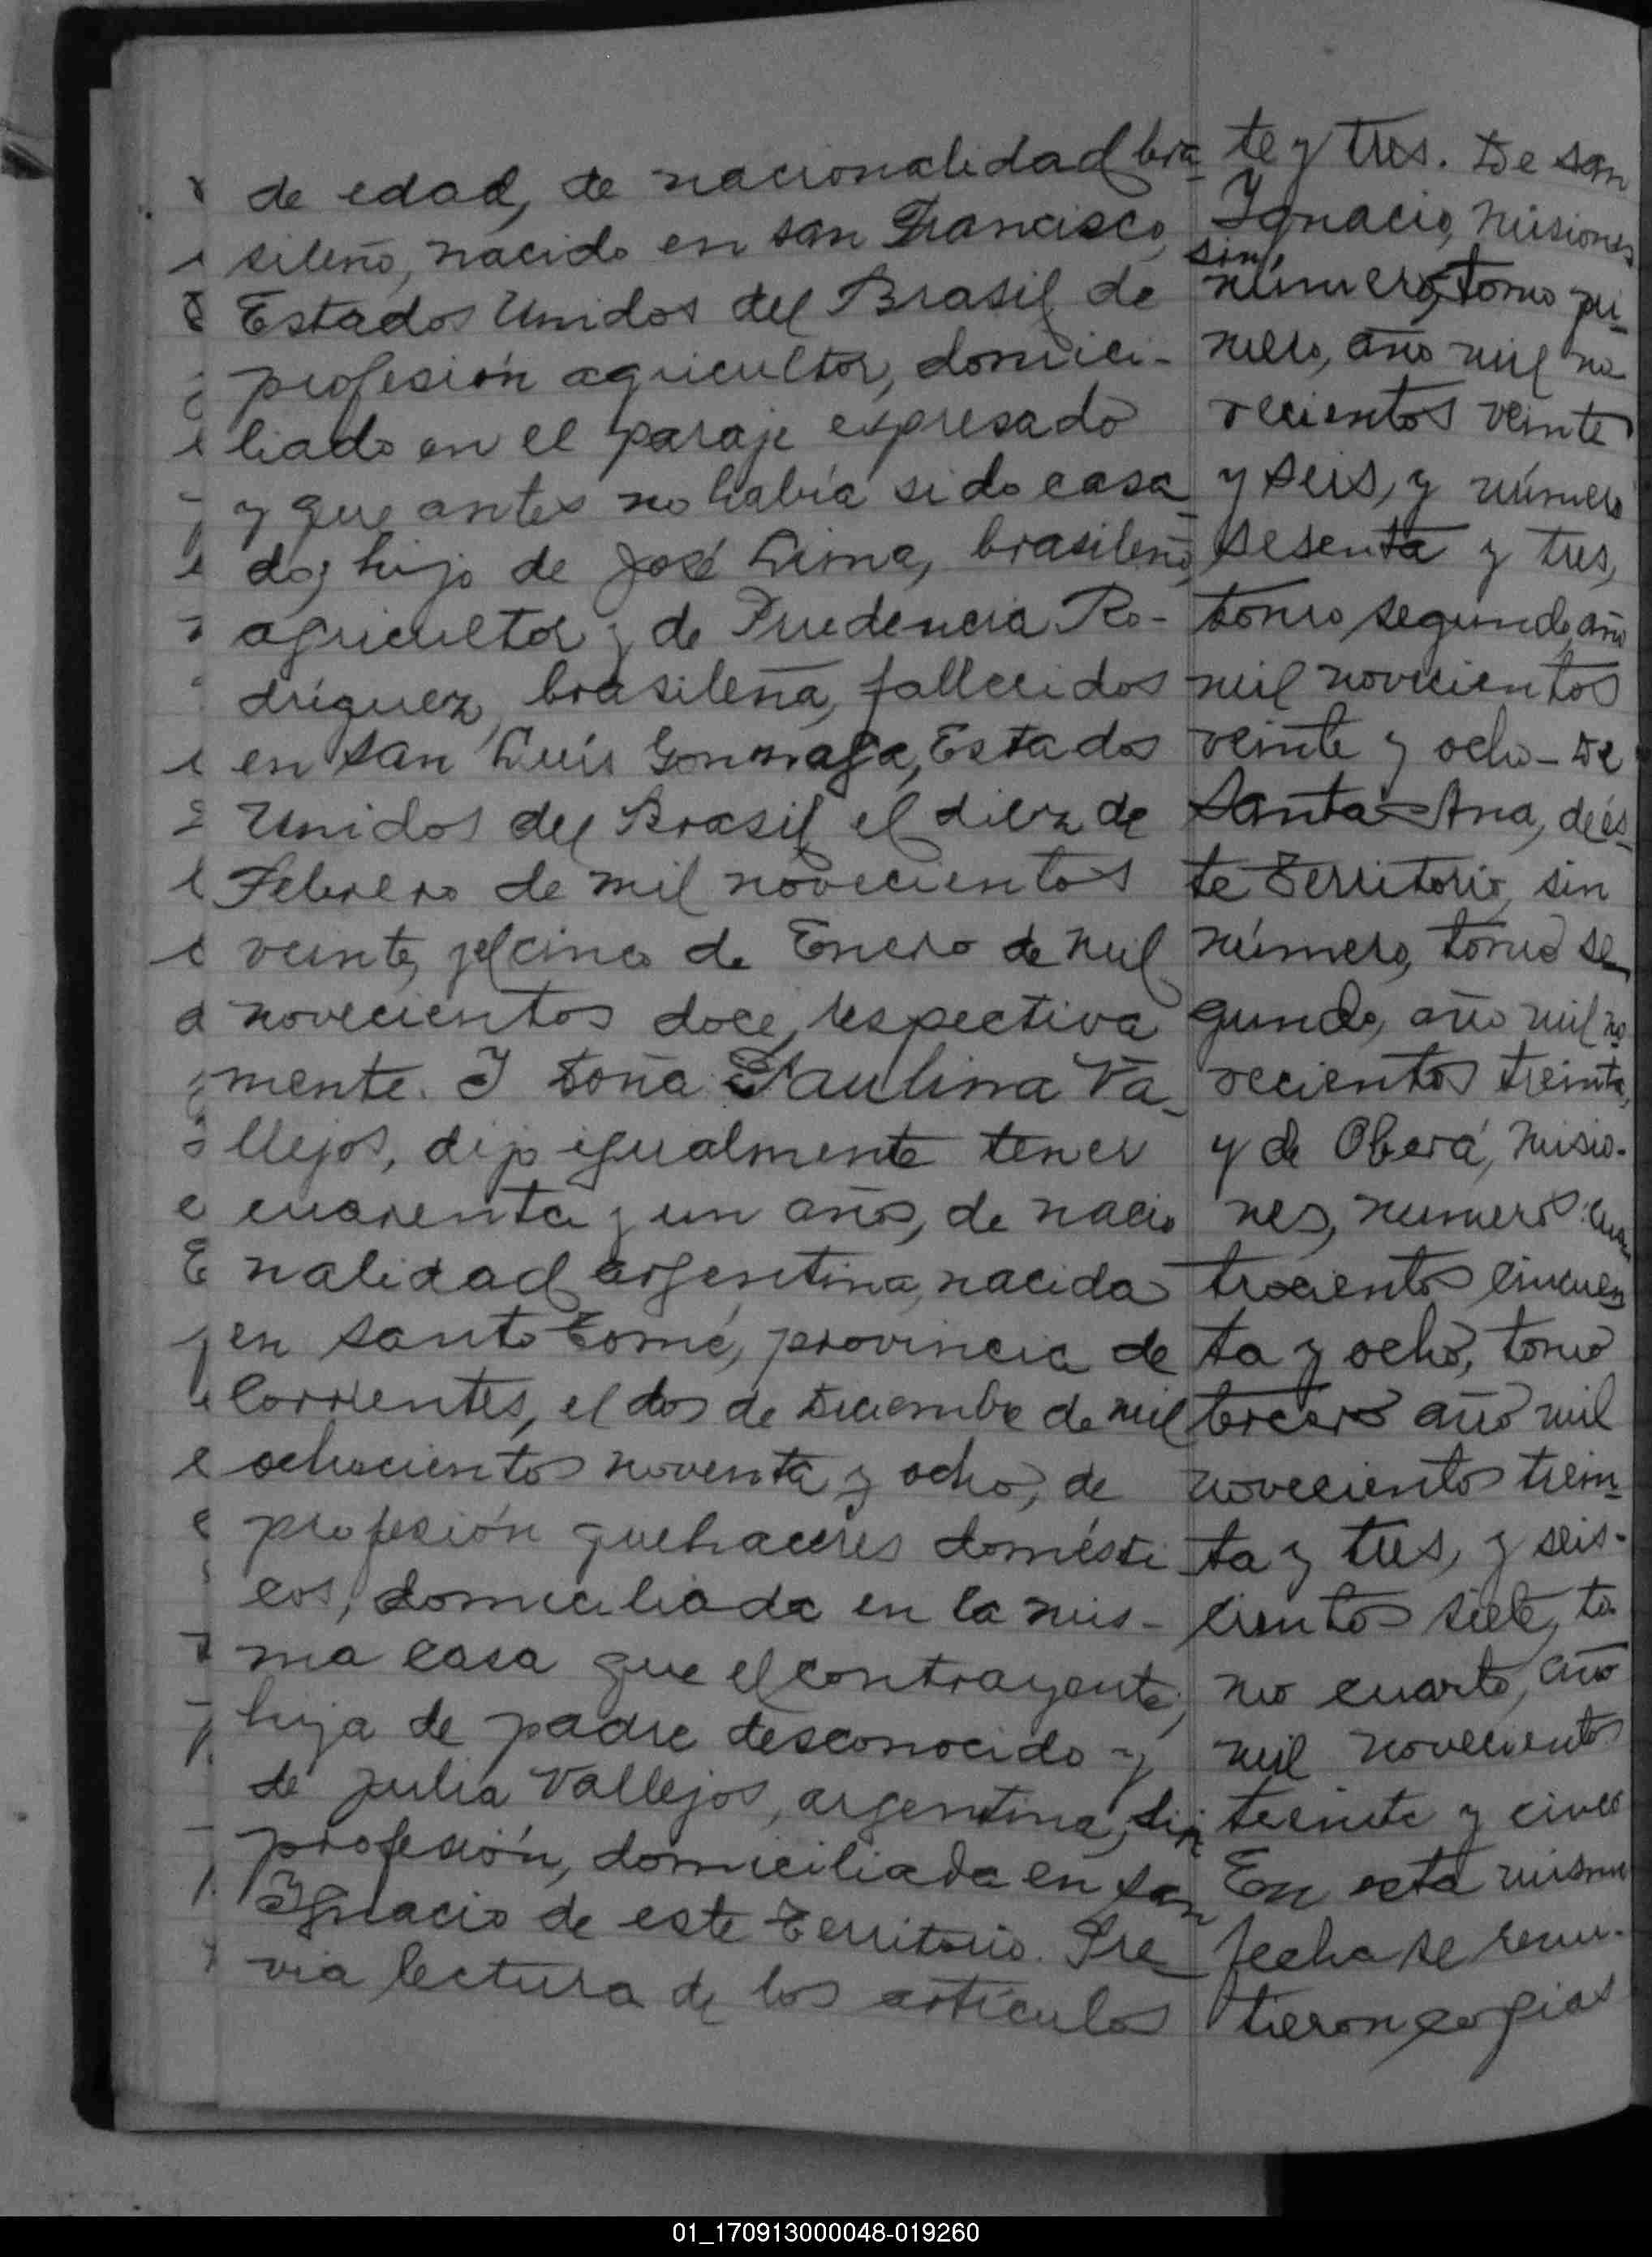 de edad, de nacionalidad bra-
sileño, nacido en san Francisco,
Estados Unidos del Brasil, de
profesión agricultor, domici-
liado en el paraje expresado
y que antes no había sido casa-
do; hijo de José Lima, brasileño,
agricultor y de Prudencia Ro-
dríguez, brasileña, fallecidos
en San Luís Gonzaga, Estados
Unidos del Brasil, el diez de
Febrero de mil novecientos
veinte, y el cinco de Enero de mil
novecientos doce, respectiva
mente. Y Doña Paulina Va-
llejos, dijo igualmente tener
cuarenta y un años, de nacio
nalidad argentina, nacida
en Santo Tomé, provincia de
Corrientes, el dos de Diciembre de mil
ochocientos noventa y ocho, de
profesión quehaceres domésti
cos, domiciliada en la mis-
ma casa que el contrayente;
hija de padre desconocido y
de Julia Vallejos, argentina, sin
profesión, domiciliada en San
Ignacio de este Territorio. Pre-
via lectura de los artículos
te y tres. De San
Ignacio, Misiones
sin
número, tomo pri-
mero, año mil no
vecientos veinte
y seis, y número
sesenta y tres,
tomo segundo, año
mil novecientos
veinte y ocho - De
Santa Ana, de és-
te Territorio, sin
número, tomo se-
gundo, año mil no
vecientos treinta,
y de Oberá, Misio-
nes, número cua
trocientos cincuen
ta y ocho, tomo
tercero año mil
novecientos trein-
ta y tres, y seis-
cientos siete, to
mo cuarto, año
mil novecientos
treinta y cinco
En esta misma
fecha se remi-
tieron copias
01_170913000048-019260